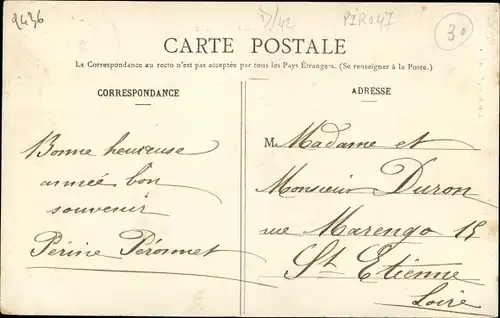 2436
D/42
PIR047
30
CARTE POSTALE
La Correspondance au recto n'est pas acceptée par tous les Pays Étrangers. (Se renseigner à la Poste.)
CORRESPONDANCE
ADRESSE
Bonne heureuse
année bon
souvenir
Périne Péronnet
M. Madame et
Monsieur Duron
rue Marengo 15
St Etienne
Loire